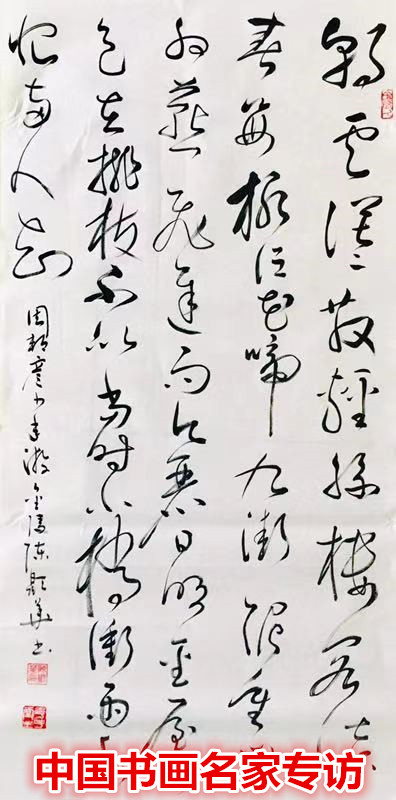 朝雲漠漠散輕絲樓閣淡
春姿柳泣花啼九街泥重門
外燕飛遲而今麗日明金屋
色在桃枝不似当时小橋衝雨幽
恨两人知
周邦彦少年游金陵陈顯華书
中国书画名家专访